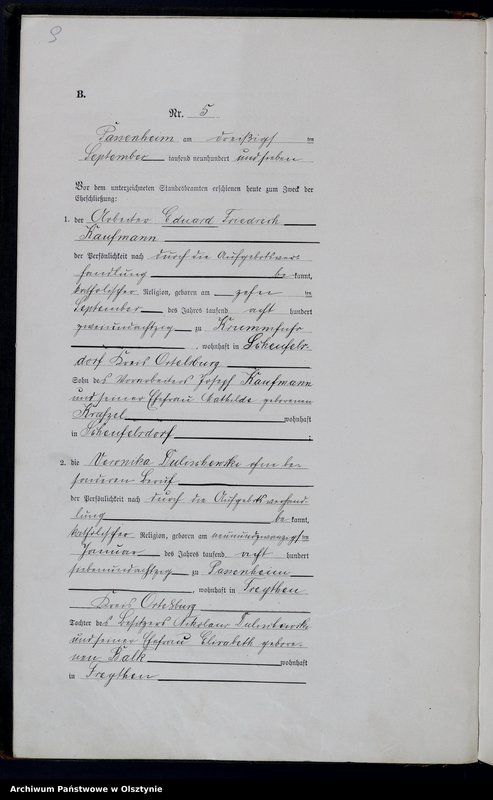 B.
Nr. 5
Passenheim am dreißigsten
September tausend neunhundert und sieben
Vor dem unterzeichneten Standesbeamten erschienen heute zum Zweck der
Eheschließung:
1. der Arbeiter Eduard Friedrich
Kaufmann
der Persönlichkeit nach durch die Aufgebotsver
handlung be kannt,
katholischer Religion, geboren am zehn ten
September des Jahres tausend acht hundert
zweiundachtzig zu
, wohnhaft in Scheufels-
dorf Kreis Ortelsburg
Sohn des Vorarbeiters Joseph Kaufmann
und seiner Ehefrau Mathilde geborenen
wohnhaft
in Scheufelsdorf ;
2. die Veronika ohne be-
sonderen Beruf
der Persönlichkeit nach durch die Aufgebotsverhand-
lung be kannt,
katholischer Religion, geboren am neunundzwanzigsten
Januar des Jahres tausend acht hundert
siebenundachtzig zu Passenheim
, wohnhaft in Freythen
Kreis Ortelsburg
Tochter des Besitzers Nikolaus
und seiner Ehefrau Elisabeth gebore-
nen Palk wohnhaft
in Freythen
Archiwum Państwowe w Olsztynie